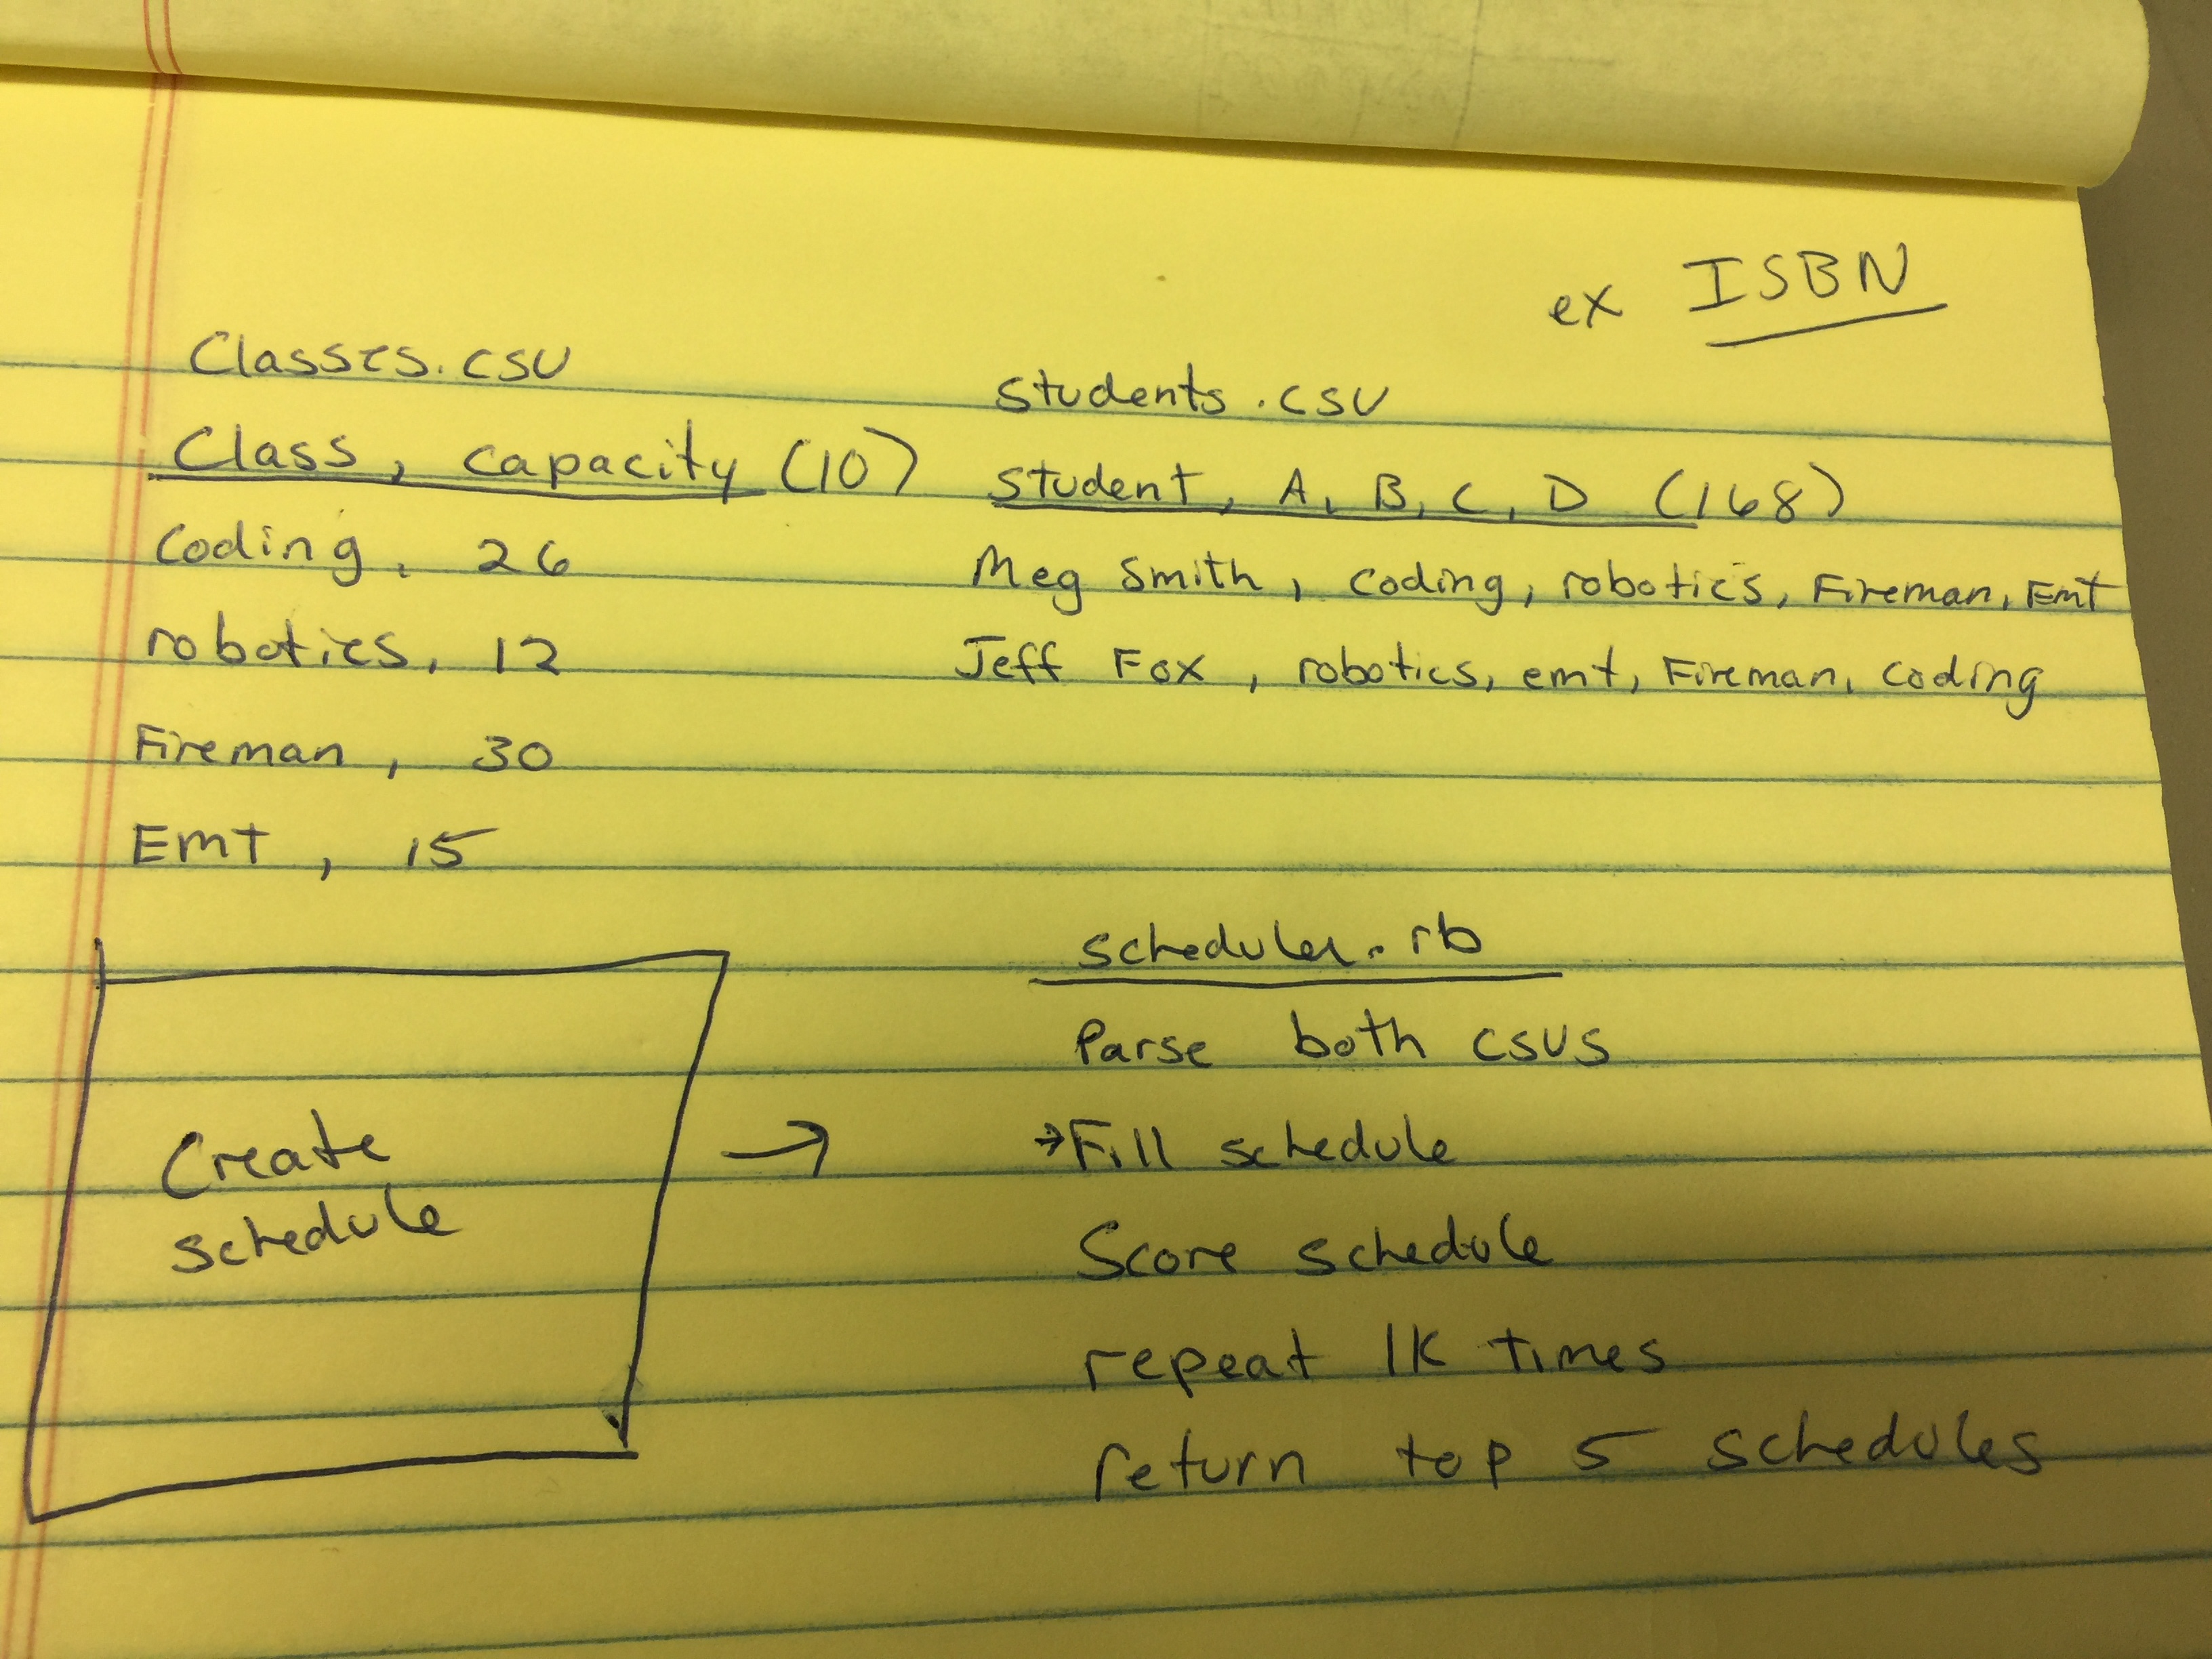 ex ISBN
Classes.csv
Class, capacity (10)
Coding, 26
robotics, 12
Fireman, 30
Emt, 15
students.csv
student, A, B, C, D (168)
Meg Smith, coding, robotics, Fireman, Emt
Jeff Fox, robotics, emt, Fireman, coding
Create
schedule
→
scheduler.rb
Parse both CSVs
→Fill schedule
Score schedule
repeat 1K times
return top 5 schedules